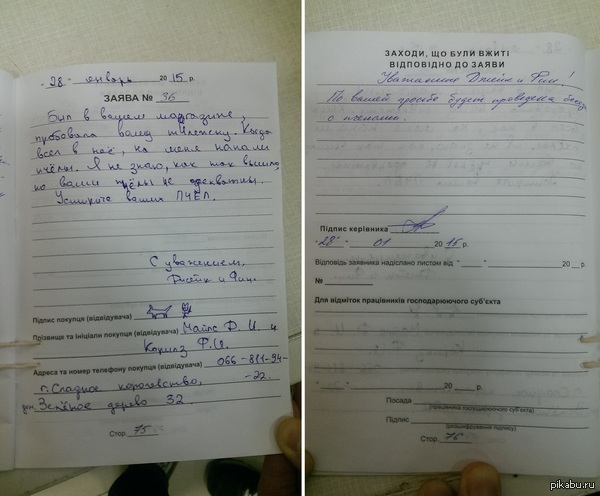 "28" январь 2015 р.
ЗАЯВА № 36
Был в вашем магазине,
пробовала вашу тележку. Когда
всел в неё, на меня напали
пчёлы. Я не знаю, как так вышло,
но ваши пчёлы не адекватны.
Усмирите ваших ПЧЁЛ.
С уважением,
Джейк и Фин.
Підпис покупця (відвідувача)
Прізвище та ініціали покупця (відвідувача) Майлс Ф. И. и
Ф.И.
Адреса та номер телефону покупця (відвідувача) 066-811-94-
-22.
г. Сладкое королевство,
Зелёное дерево 32.
Стор. 75
ЗАХОДИ, ЩО БУЛИ ВЖИТІ
ВІДПОВІДНО ДО ЗАЯВИ
Уважаемые Джейк и Фин!
По вашей просьбе будет проведена беседа
с пчелами.
Підпис керівника
"28" 01 2015 р.
Відповідь заявника надіслано листом від " " 20 р.
№
Для відміток працівників господарюючого суб'єкта
" " 20 р.
Посада
(працівника господарюючого суб'єкта)
Підпис
(розшифрування підпису)
Стор. 76
pikabu.ru